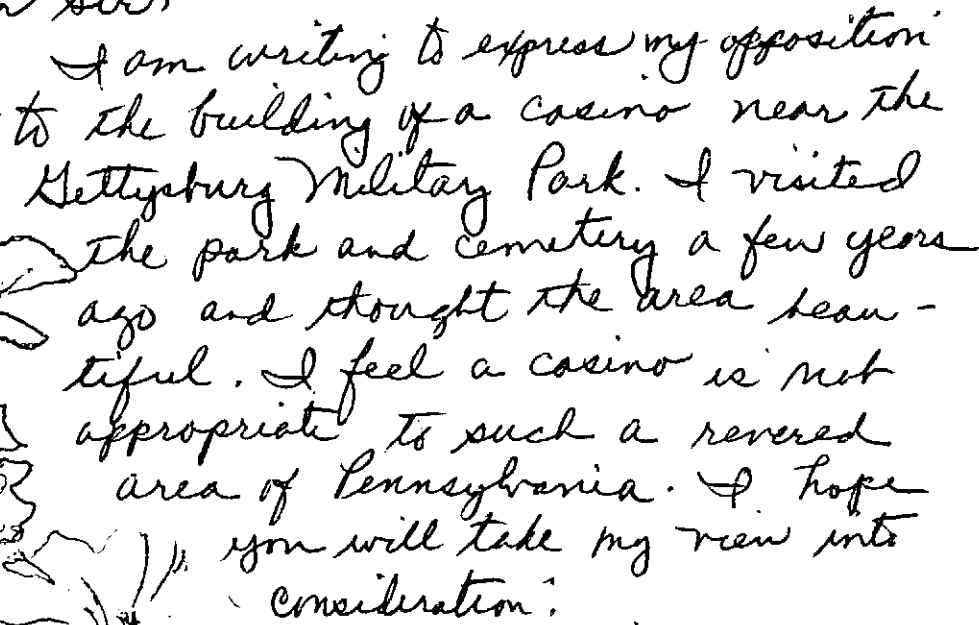 sir,
I am writing to express my opposition
to the building of a casino near the
Gettysburg Military Park. I visited
the park and cemetery a few years
ago and thought the area beau-
tiful. I feel a casino is not
appropriate to such a revered
area of Pennsylvania. I hope
you will take my view into
consideration.